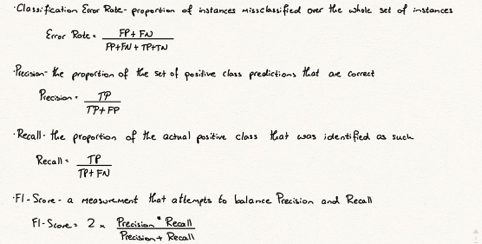 ·Classification Error Rate- proportion of instances missclassified over the whole set of instances
Error Rate = FP + FN / FP+FN + TP+TN
·Precision- the proportion of the set of positive class predictions that are correct
Precision = TP / TP+FP
·Recall- the proportion of the actual positive class that was identified as such
Recall = TP / TP+ FN
·F1-Score - a measurement that attempts to balance Precision and Recall
F1-Score = 2 × Precision * Recall / Precision + Recall